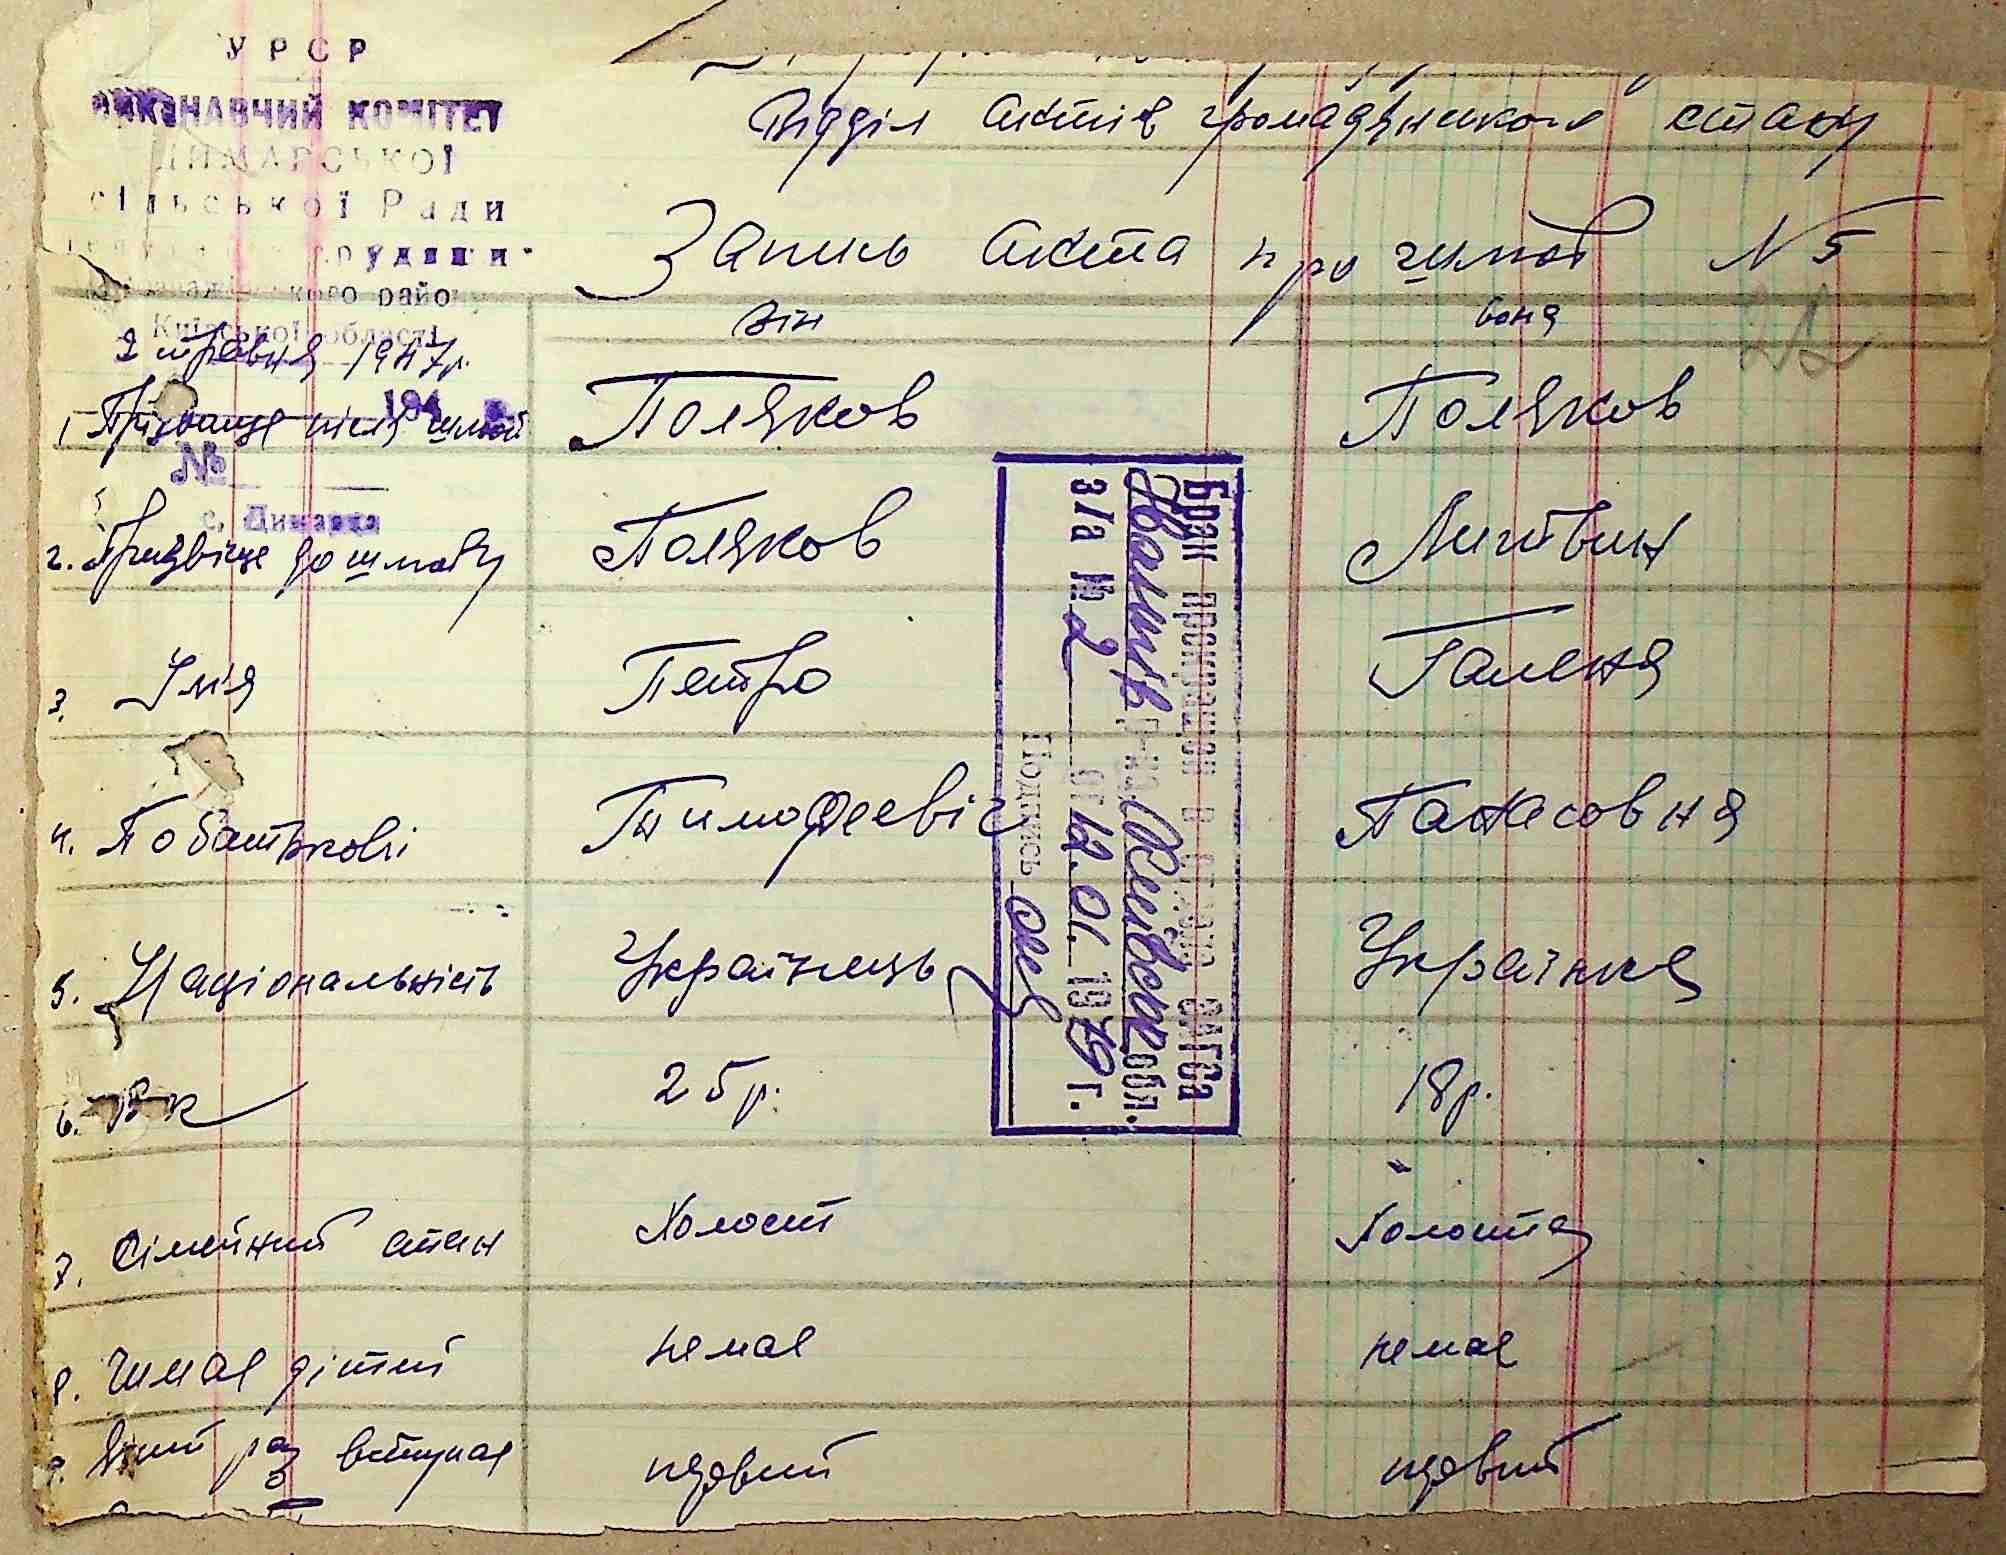 УРСР
ВИКОНАВЧИЙ КОМІТЕТ
ДИМАРСЬКОЇ
сільської Ради
району
Київської області
194
№
с. Димарка
Відділ актів громадянського стану
Запись акта про шлюб N 5
він вона
2 травня 1947р.
1 Прізвище після шлюб Поляков Поляков
2. Призвіще до шлюбу Поляков Литвин
3. Імія Петро Галена
4. Побатькові Тимофеевіч Панасовна
5. Національність Українець Українка
6. Вік 25р. 18р.
7. Сімейний стан Холост Холоста
8. Чи мае дітей немае немае
9. Який раз вступае первий первий
Брак прекращен в отделе ЗАГСа
р-на Київськ обл.
з/а № 2 от 12.01. 1979 г.
Подпись